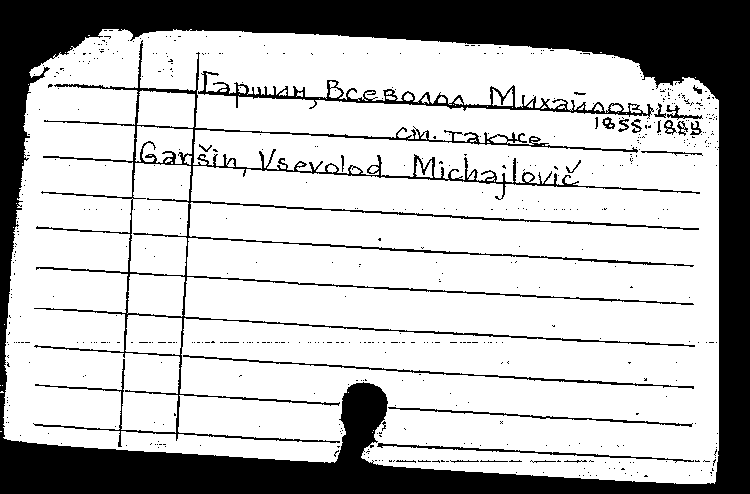 Гаршин, Всеволод Михайлович
1855-1888
см. также
Garšin, Vsevolod Michajlovič